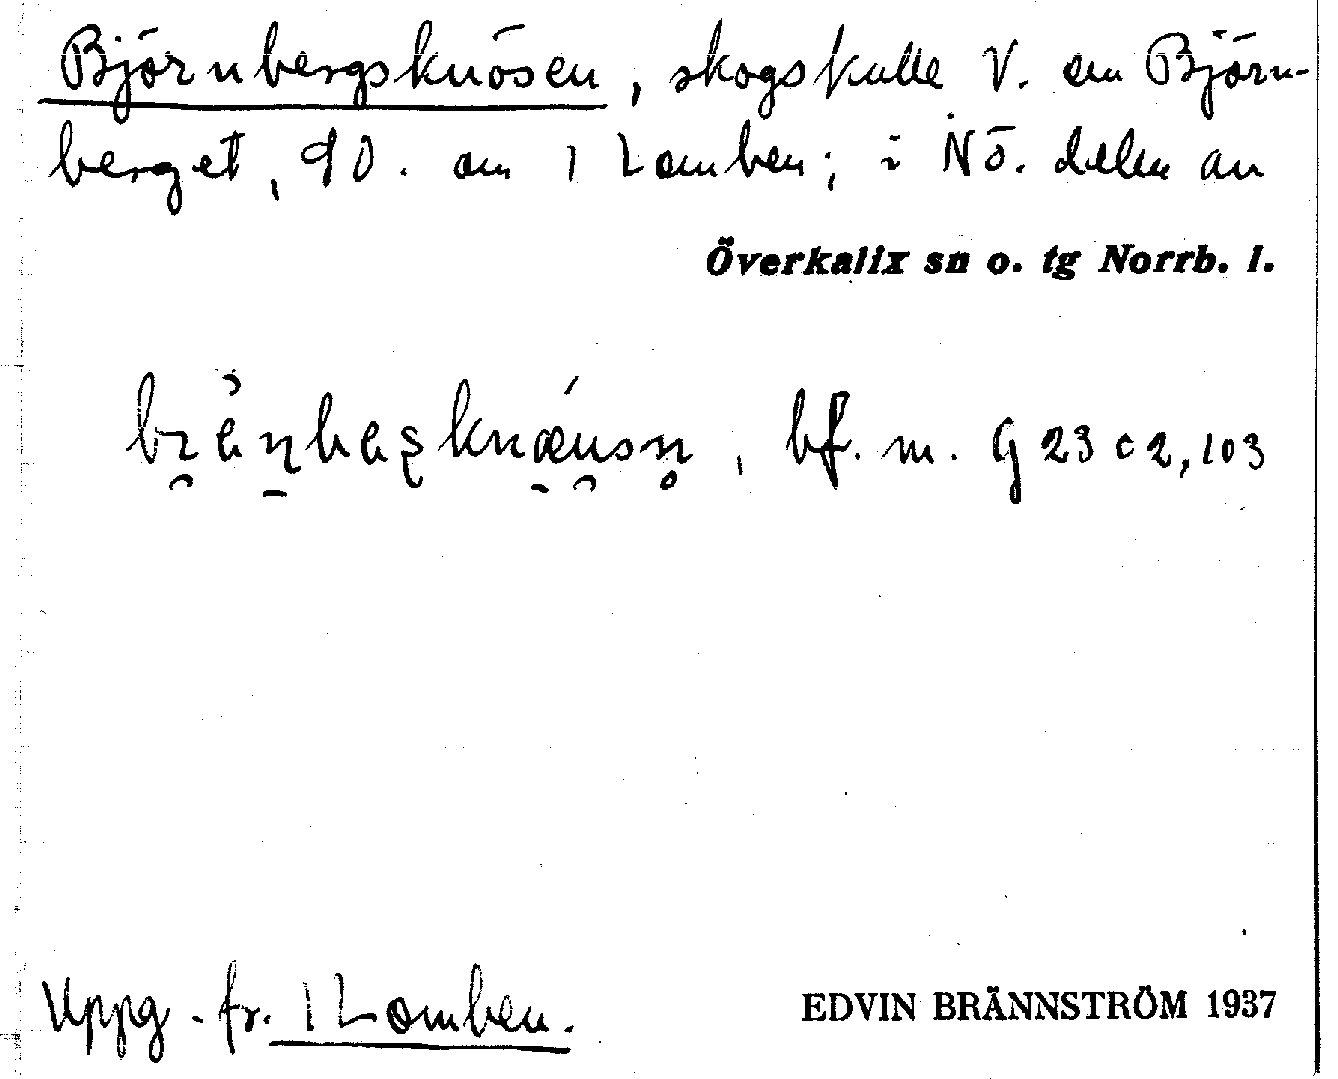 Björnbergsknösen, skogskulle V. om Björn-
berget, SO. om 1 Lomben; i NÖ. delen av
Överkalix sn o. tg Norrb. l.
bf. m. G 23 c 2, 103
Uppg. fr. 1 Lomben.
EDVIN BRÄNNSTRÖM 1937